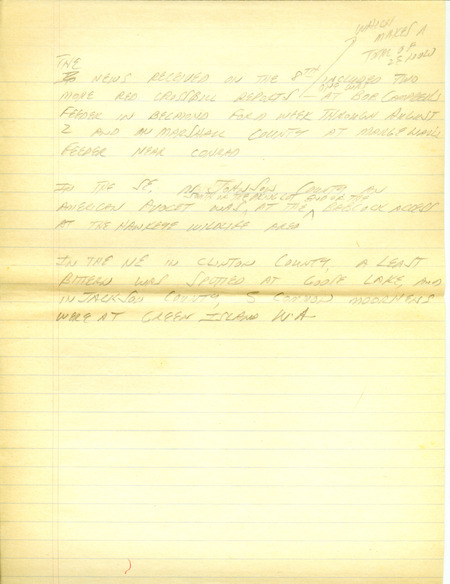 WHICH
MAKES A
TOTAL OF
23 NOW
THE
NEWS RECEIVED ON THE 8TH INCLUDED TWO
MORE RED CROSSBILL REPORTS ONE WAS AT BOB CAMPBELL'S
FEEDER IN BELMOND FOR A WEEK THROUGH AUGUST
2 AND IN MARSHALL COUNTY AT MARGE
FEEDER NEAR CONRAD
IN THE SE. IN JOHNSON COUNTY AN
SOUTH OF THE END OF THE
AMERICAN AVOCET WAS, AT THE BABCOCK ACCESS
AT THE HAWKEYE WILDLIFE AREA
IN THE NE IN CLINTON COUNTY, A LEAST
BITTERN WAS SPOTTED AT GOOSE LAKE, AND
IN JACKSON COUNTY, 5 COMMON MOORHENS
WERE AT GREEN ISLAND W.A